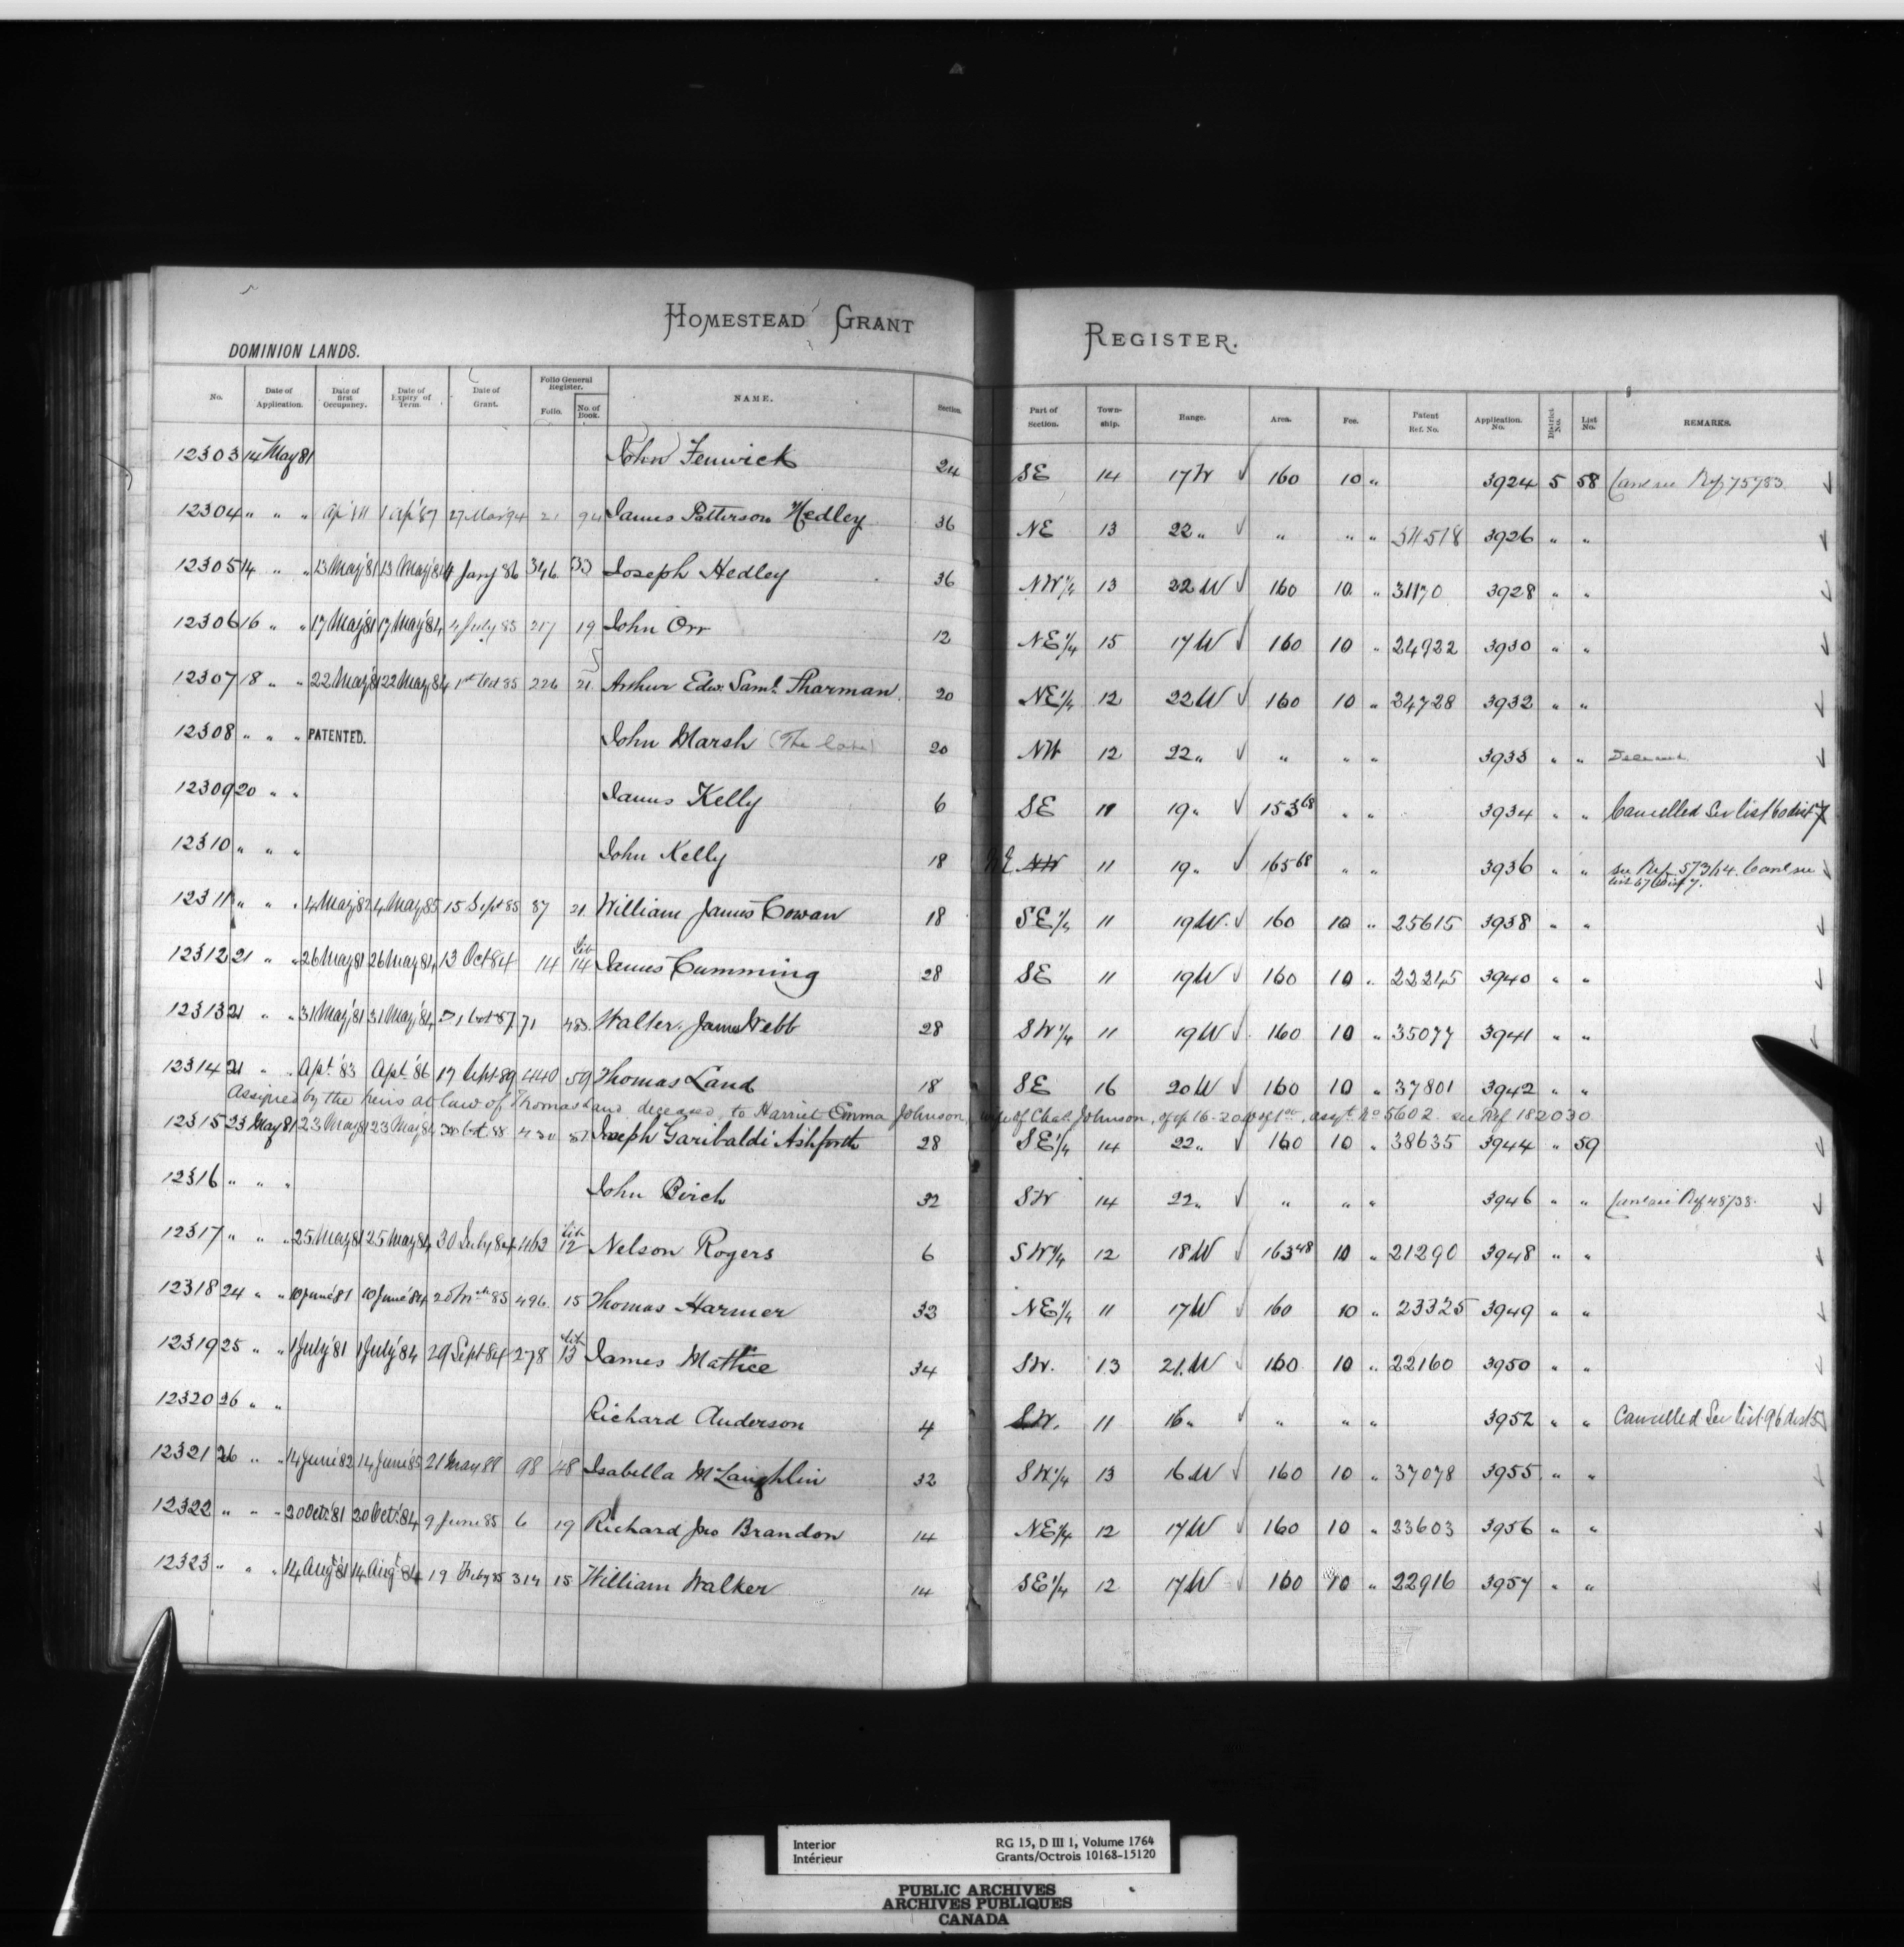 HOMESTEAD GRANT REGISTER.
DOMINION LANDS.
No. Date of Application. Date of first Occupancy. Date of Expiry of Term. Date of Grant. Folio General Register. Folio. No. of Book. NAME. Section. Part of Section. Town-ship. Range. Area. Fee. Patent Ref. No. Application. No. District No. List No. REMARKS.
12303 14 May 81 John Fenwick 24 SE 14 17 W 160 10 „ 3924 5 58 Ref 75783
12304 „ „ „ 1 Ap '87 27 Mar 94 21 94 James Patterson Hedley 36 NE 13 22 „ „ „ „ 3926 „ „
12305 14 „ „ 13 May '81 13 May '84 4 Jany 86 346 33 Joseph Hedley 36 NW 1/4 13 22 W 160 10 „ 31170 3928 „ „
12306 16 „ „ 17 May '81 17 May '84 4 July 85 217 19 John Orr 12 NE 1/4 15 17 W 160 10 „ 24922 3930 „ „
12307 18 „ „ 22 May '81 22 May '84 1st Oct 85 226 21 Arthur Edw. Saml. Sharman 20 NE 1/4 12 22 W 160 10 „ 24728 3932 „ „
12308 „ „ „ PATENTED. John Marsh (The late) 20 NW 12 22 „ „ „ „ 3933 „ „
12309 20 „ „ James Kelly 6 SE 11 19 „ 153 68 „ „ 3934 „ „ Cancelled See list 60 dist 7
12310 „ „ „ John Kelly 18 NE NW 11 19 „ 165 68 „ „ 3936 „ „ see Ref 57364. Canc see
list 67 Dist 7.
12311 „ „ „ 4 May '82 4 May 85 15 Sept 85 87 21 William James Cowan 18 SE 1/4 11 19 W. 160 10 „ 25615 3938 „ „
12312 21 „ „ 26 May 81 26 May 84 13 Oct 84 14 Lib 14 James Cumming 28 SE 11 19 W 160 10 „ 22245 3940 „ „
12313 21 „ „ 31 May '81 31 May '84 Oct '87 71 Walter James Webb 28 SW 1/4 11 19 W 160 10 „ 35077 3941 „ „
12314 21 „ „ Apl '83 Apl '86 17 Sept 89 440 59 Thomas Land 18 SE 16 20 W 160 10 „ 37801 3942 „ „
Assigned by the heirs at law of Thomas Land, deceased, to Harriet Emma Johnson, wife of Chas. Johnson, of 16-20 W of 1st, assgt. No 5602 see Ref 182030
12315 23 May 81 23 May 81 23 May 84 Oct 88 430 51 Joseph Garibaldi Ashforth 28 SE 1/4 14 22 „ 160 10 „ 38635 3944 „ 59
12316 „ „ „ John Birch 32 SW 14 22 „ „ „ „ 3946 „ „ Canc see Ref 48738.
12317 „ „ „ 25 May 81 25 May 84 30 July 84 463 Lib 12 Nelson Rogers 6 SW 1/4 12 18 W 163 48 10 „ 21290 3948 „ „
12318 24 „ „ 10 June '81 10 June '84 20 Mch 85 496 15 Thomas Harmer 33 NE 1/4 11 17 W 160 10 „ 23325 3949 „ „
12319 25 „ „ 1 July '81 1 July '84 29 Sept 84 278 Lib 13 James Mattice 34 SW. 13 21. W 160 10 „ 22160 3950 „ „
12320 26 „ „ Richard Anderson 4 SW. 11 16 „ „ „ „ 3952 „ „ Cancelled See list 96 dist 5
12321 26 „ „ 14 June '82 14 June '85 21 May 88 98 48 Isabella McLaughlin 32 SW 1/4 13 16 W 160 10 „ 37078 3955 „ „
12322 „ „ „ 20 Oct. '81 20 Oct. '84 9 June 85 6 19 Richard Jno Brandon 14 NE 1/4 12 17 W 160 10 „ 23603 3956 „ „
12323 „ „ „ 14 Augt '81 14 Augt 84 19 Feby 85 314 15 William Walker 14 SE 1/4 12 17 W 160 10 „ 22916 3957 „ „
Interior RG 15, D III 1, Volume 1764
Intérieur Grants/Octrois 10168-15120
PUBLIC ARCHIVES
ARCHIVES PUBLIQUES
CANADA